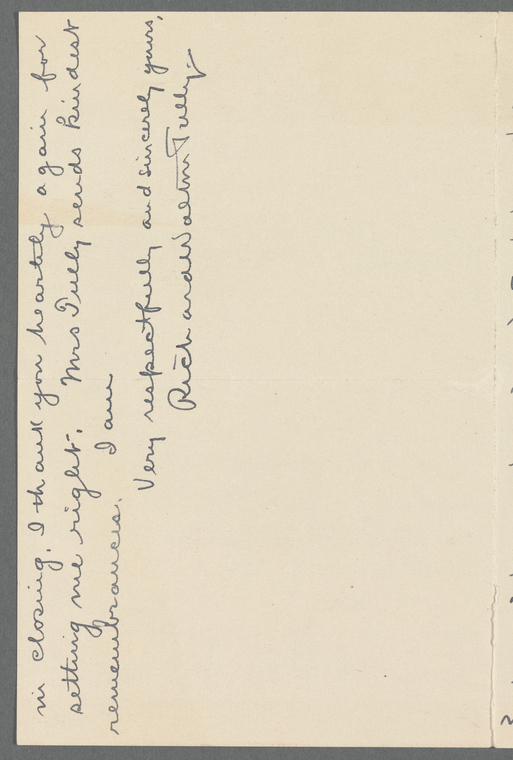 in closing, I thank you heartily again for
setting me right. Mrs Tully sends kindest
remembrances. I am
Very respectfully and sincerely yours,
Richard Walton Tully